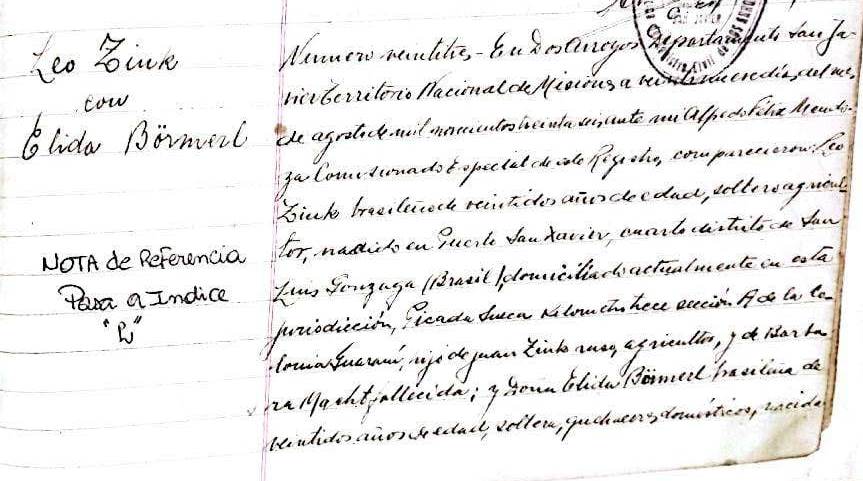 Leo Zink
con
Elida Börmerl
NOTA de Referencia
Pasa a Indice
"L"
Numero veintitres - En Dos Arroyos Departamento San Ja-
vier Territorio Nacional de Misiones a veintinueve dias del mes
de agosto de mil novecientos treinta seis, ante mi Alfredo Félix Mendo-
za Comisionado Especial de este Registro, comparecieron: Leo
Zink brasileño de veintidos años de edad, soltero agricul-
tor, nacido en San Xavier, cuarto distrito de San
Luis Gonzaga (Brasil), domiciliado actualmente en esta
jurisdicción, Picada Sueca Kilometro trece sección A de la Co-
lonia Guaraní, hijo de Juan Zink ruso, agricultor, y de Barba-
ra fallecida; y Doña Elida Börmerl brasileña de
veintidos años de edad, soltera, quehaceres domésticos, nacida